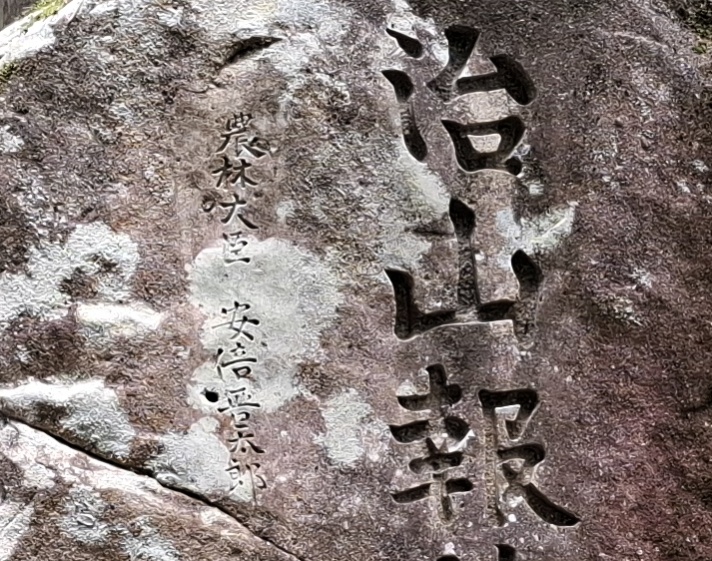 治山報
農林大臣 安倍晋太郎